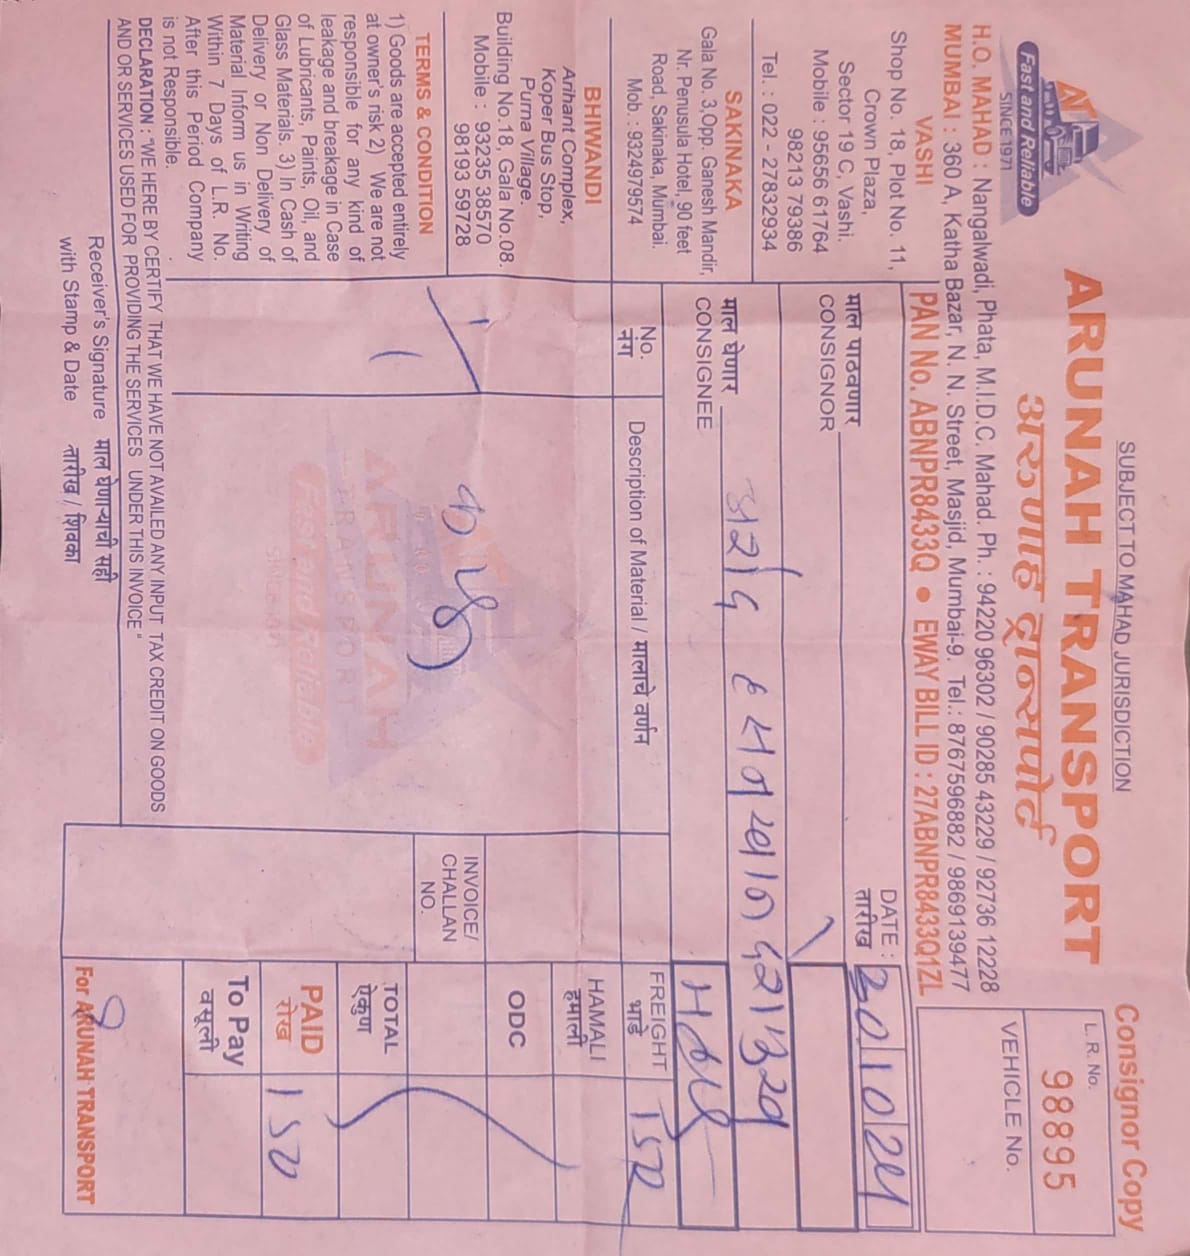 SUBJECT TO MAHAD JURISDICTION
Consignor Copy
Fast and Reliable
SINCE 1971
ARUNAH TRANSPORT
अरुणाह ट्रान्सपोर्ट
L.R. No.
98895
VEHICLE No.
H.O. MAHAD : Nangalwadi, Phata, M.I.D.C. Mahad. Ph. : 94220 96302 / 90285 43229 / 92736 12228
MUMBAI : 360 A, Katha Bazar, N. N. Street, Masjid, Mumbai-9. Tel.: 8767596882 / 9869139477
PAN No. ABNPR8433Q • EWAY BILL ID : 27ABNPR8433Q1ZL
VASHI
Shop No. 18, Plot No. 11,
Crown Plaza,
Sector 19 C, Vashi.
Mobile : 95656 61764
98213 79386
Tel. : 022 - 27832934
SAKINAKA
Gala No. 3,Opp. Ganesh Mandir,
Nr. Penusula Hotel, 90 feet
Road, Sakinaka, Mumbai.
Mob. : 9324979574
BHIWANDI
Arihant Complex,
Koper Bus Stop,
Purna Village.
Building No.18, Gala No.08.
Mobile : 93235 38570
98193 59728
TERMS & CONDITION
1) Goods are accepted entirely
at owner's risk 2) We are not
responsible for any kind of
leakage and breakage in Case
of Lubricants, Paints, Oil, and
Glass Materials. 3) In Cash of
Delivery or Non Delivery of
Material Inform us in Writing
Within 7 Days of L.R. No.
After this Period Company
is not Responsible.
DATE :
तारीख
माल पाठवणार
CONSIGNOR
माल घेणार
CONSIGNEE
No.
नंग
Description of Material / मालाचे वर्णन
1
FREIGHT
भाडे
150
HAMALI
हमाली
ODC
INVOICE/
CHALLAN
NO.
TOTAL
ऐकुण
PAID
रोख
150
To Pay
वसूली
DECLARATION : "WE HERE BY CERTIFY THAT WE HAVE NOT AVAILED ANY INPUT TAX CREDIT ON GOODS
AND OR SERVICES USED FOR PROVIDING THE SERVICES UNDER THIS INVOICE "
Receiver's Signature माल घेणाऱ्याची सही
with Stamp & Date तारीख / शिक्का
For ARUNAH TRANSPORT
ARUNAH
TRANSPORT
Fast and Reliable